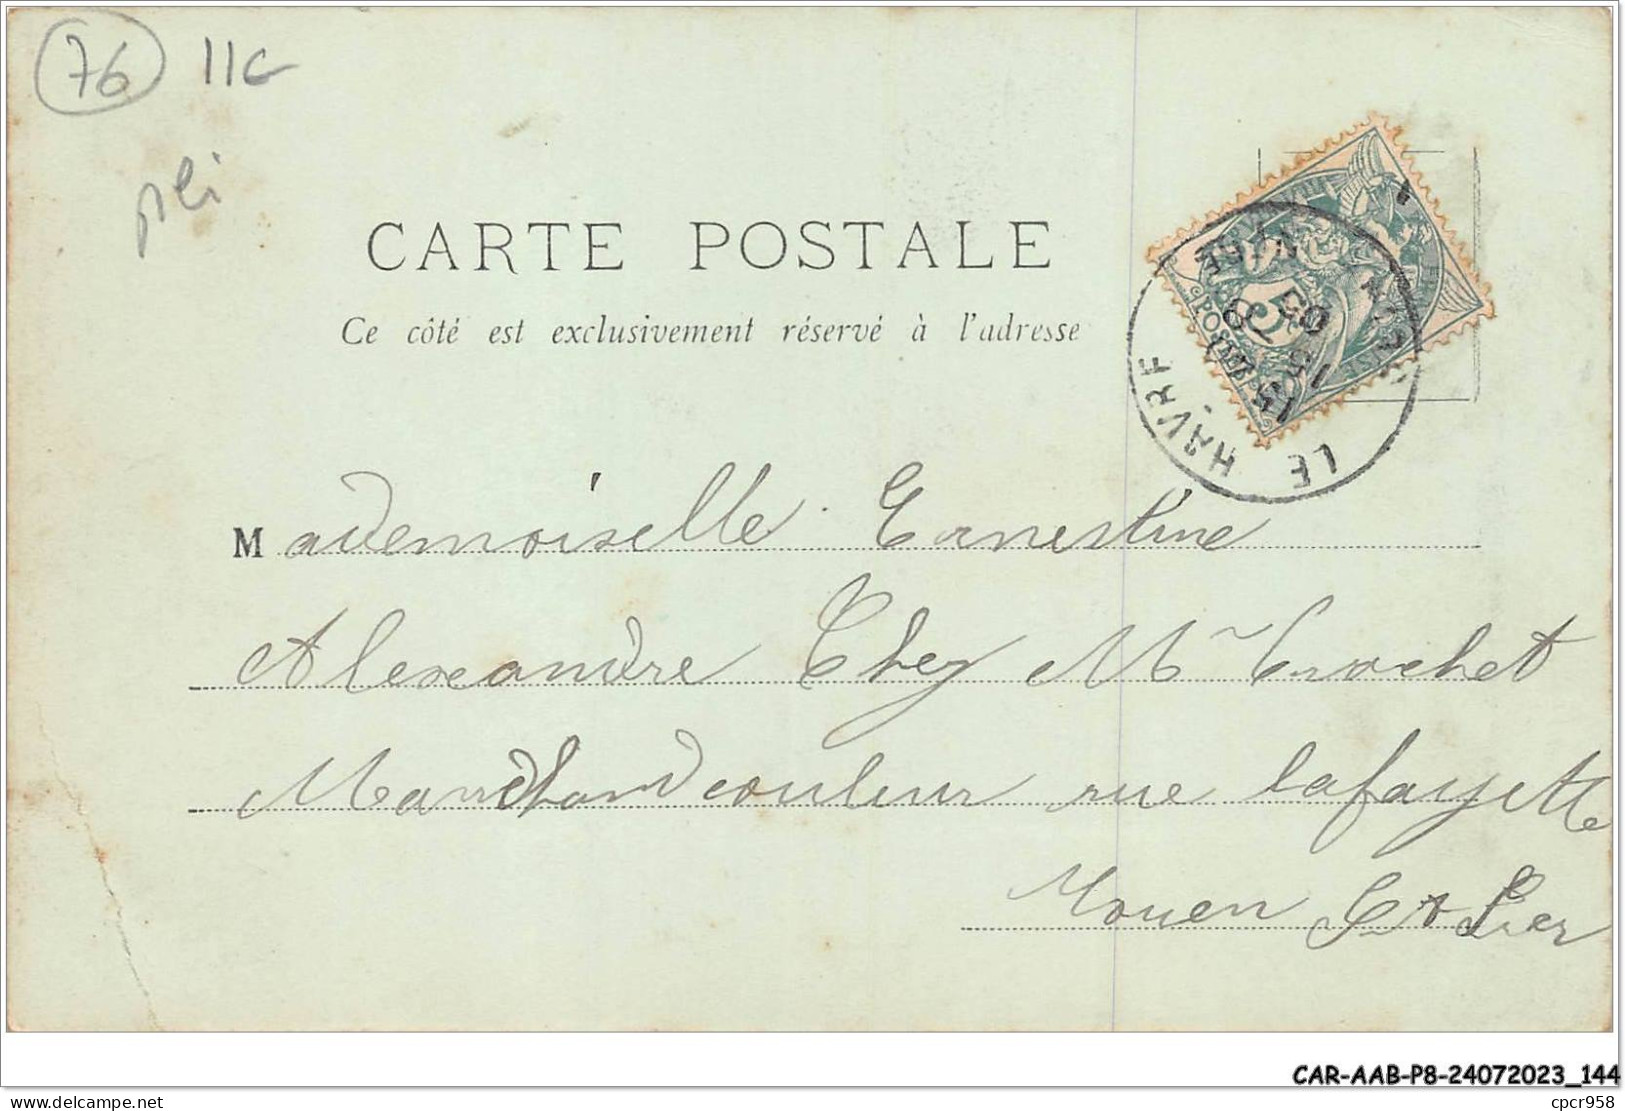 76 11c
pli
CARTE POSTALE
Ce côté est exclusivement réservé à l'adresse
POSTES
LE HAVRE
15 15
-8
05
Mademoiselle Ernestine
Alexandre Chez Mr Crochet
Marchand couleur rue lafayette
Rouen
CAR-AAB-P8-24072023_144
delcampe.net
cpcr958